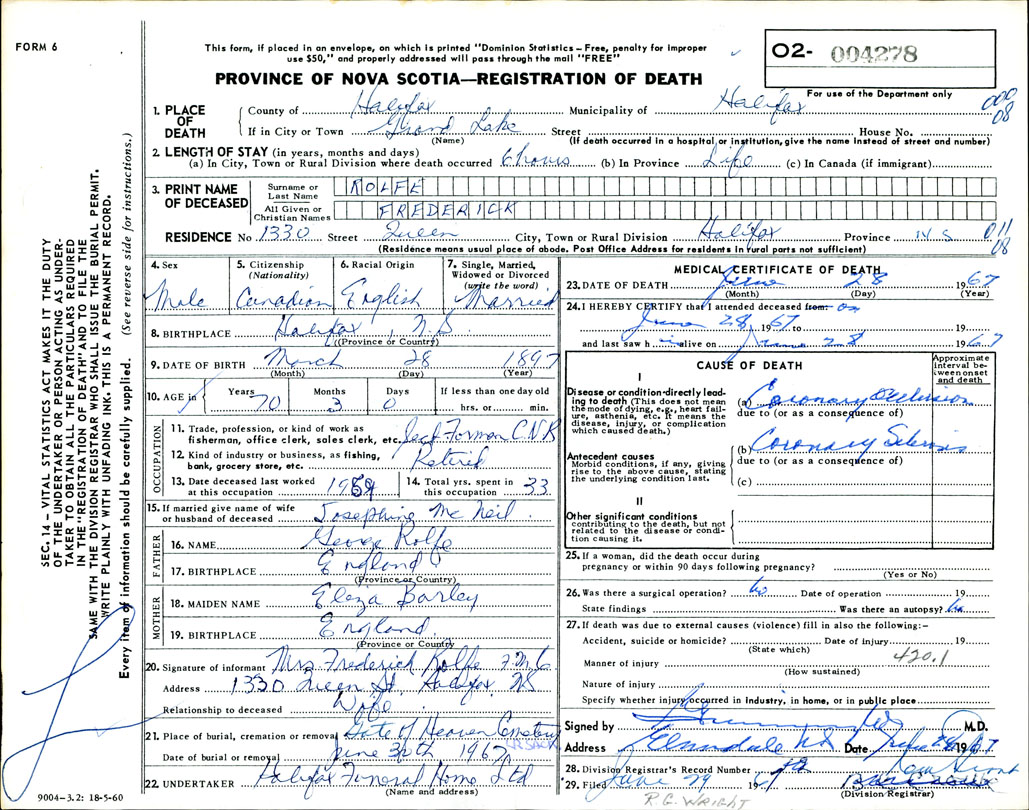 FORM 6
This form, if placed in an envelope, on which is printed "Dominion Statistics – Free, penalty for improper
use $50," and properly addressed will pass through the mail "FREE"
PROVINCE OF NOVA SCOTIA—REGISTRATION OF DEATH
O2- 004278
For use of the Department only
000
08
1. PLACE OF DEATH
County of Halifax Municipality of Halifax
If in City or Town Grand Lake Street House No.
(Name) (If death occurred in a hospital or institution, give the name instead of street and number)
2. LENGTH OF STAY (in years, months and days)
(a) In City, Town or Rural Division where death occurred 6 hours (b) In Province Life (c) In Canada (if immigrant)
3. PRINT NAME OF DECEASED
Surname or Last Name ROLFE
All Given or Christian Names FREDERICK
RESIDENCE No 1330 Street Queen City, Town or Rural Division Halifax Province N S
011
08
(Residence means usual place of abode. Post Office Address for residents in rural parts not sufficient)
4. Sex
Male
5. Citizenship
(Nationality)
Canadian
6. Racial Origin
English
7. Single, Married,
Widowed or Divorced
(write the word)
Married
8. BIRTHPLACE Halifax, N.S.
(Province or Country)
9. DATE OF BIRTH March 28 1897
(Month) (Day) (Year)
10. AGE in Years 70 Months 3 Days 0 If less than one day old
hrs. or min.
OCCUPATION
11. Trade, profession, or kind of work as
fisherman, office clerk, sales clerk, etc. Forman C.N.R
12. Kind of industry or business, as fishing,
bank, grocery store, etc. Retired
13. Date deceased last worked
at this occupation 1959
14. Total yrs. spent in
this occupation 33
15. If married give name of wife
or husband of deceased Josephine Mc Neil
FATHER
16. NAME George Rolfe
17. BIRTHPLACE England
(Province or Country)
MOTHER
18. MAIDEN NAME Eleza Barley
19. BIRTHPLACE England
(Province or Country)
20. Signature of informant Mrs Frederick Rolfe
Address 1330 Queen St, Halifax NS
Relationship to deceased Wife
21. Place of burial, cremation or removal Gate of Heaven Cemetery
Date of burial or removal June 30th 1967
22. UNDERTAKER Halifax Funeral Home Ltd
(Name and address)
9004-3.2: 18-5-60
MEDICAL CERTIFICATE OF DEATH
23. DATE OF DEATH June 28 1967
(Month) (Day) (Year)
24. I HEREBY CERTIFY that I attended deceased from: on
June 28, 1967 to 19
and last saw h alive on June 28 1967
CAUSE OF DEATH
Approximate interval between onset and death
I
Disease or condition directly leading to death (This does not mean the mode of dying, e.g., heart failure, asthenia, etc. It means the disease, injury, or complication which caused death.)
(a) Coronary Occlusion
due to (or as a consequence of)
Antecedent causes
Morbid conditions, if any, giving rise to the above cause, stating the underlying condition last.
(b) Coronary
due to (or as a consequence of)
(c)
II
Other significant conditions
contributing to the death, but not related to the disease or condition causing it.
25. If a woman, did the death occur during
pregnancy or within 90 days following pregnancy?
(Yes or No)
26. Was there a surgical operation? No Date of operation 19
State findings Was there an autopsy? No
27. If death was due to external causes (violence) fill in also the following:–
Accident, suicide or homicide? Date of injury 19
(State which)
420.1
Manner of injury
(How sustained)
Nature of injury
Specify whether injury occurred in industry, in home, or in public place
Signed by M.D.
Address Elmsdale NS Date June 28 1967
28. Division Registrar's Record Number
29. Filed June 29 1967
(Division Registrar)
R.G. WRIGHT
SEC. 14 – VITAL STATISTICS ACT MAKES IT THE DUTY
OF THE UNDERTAKER OR PERSON ACTING AS UNDERTAKER TO OBTAIN ALL THE PARTICULARS REQUIRED
IN THE "REGISTRATION OF DEATH" AND TO FILE THE
SAME WITH THE DIVISION REGISTRAR WHO SHALL ISSUE THE BURIAL PERMIT.
WRITE PLAINLY WITH UNFADING INK. THIS IS A PERMANENT RECORD.
Every item of information should be carefully supplied. (See reverse side for instructions.)